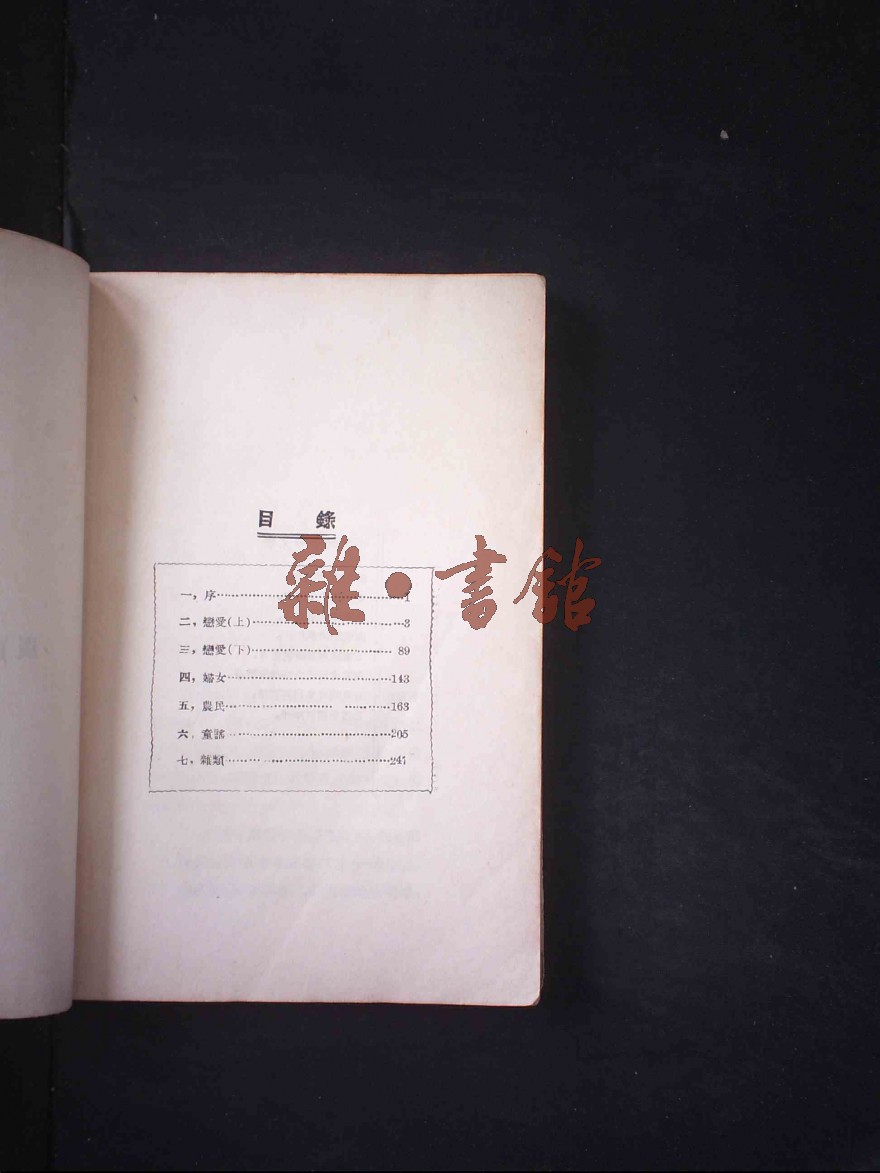 目錄
一，序……1
二，戀愛(上)……3
三，戀愛(下)……89
四，婦女……143
五，農民……163
六，童謠……205
七，雜類……241
雜·書館